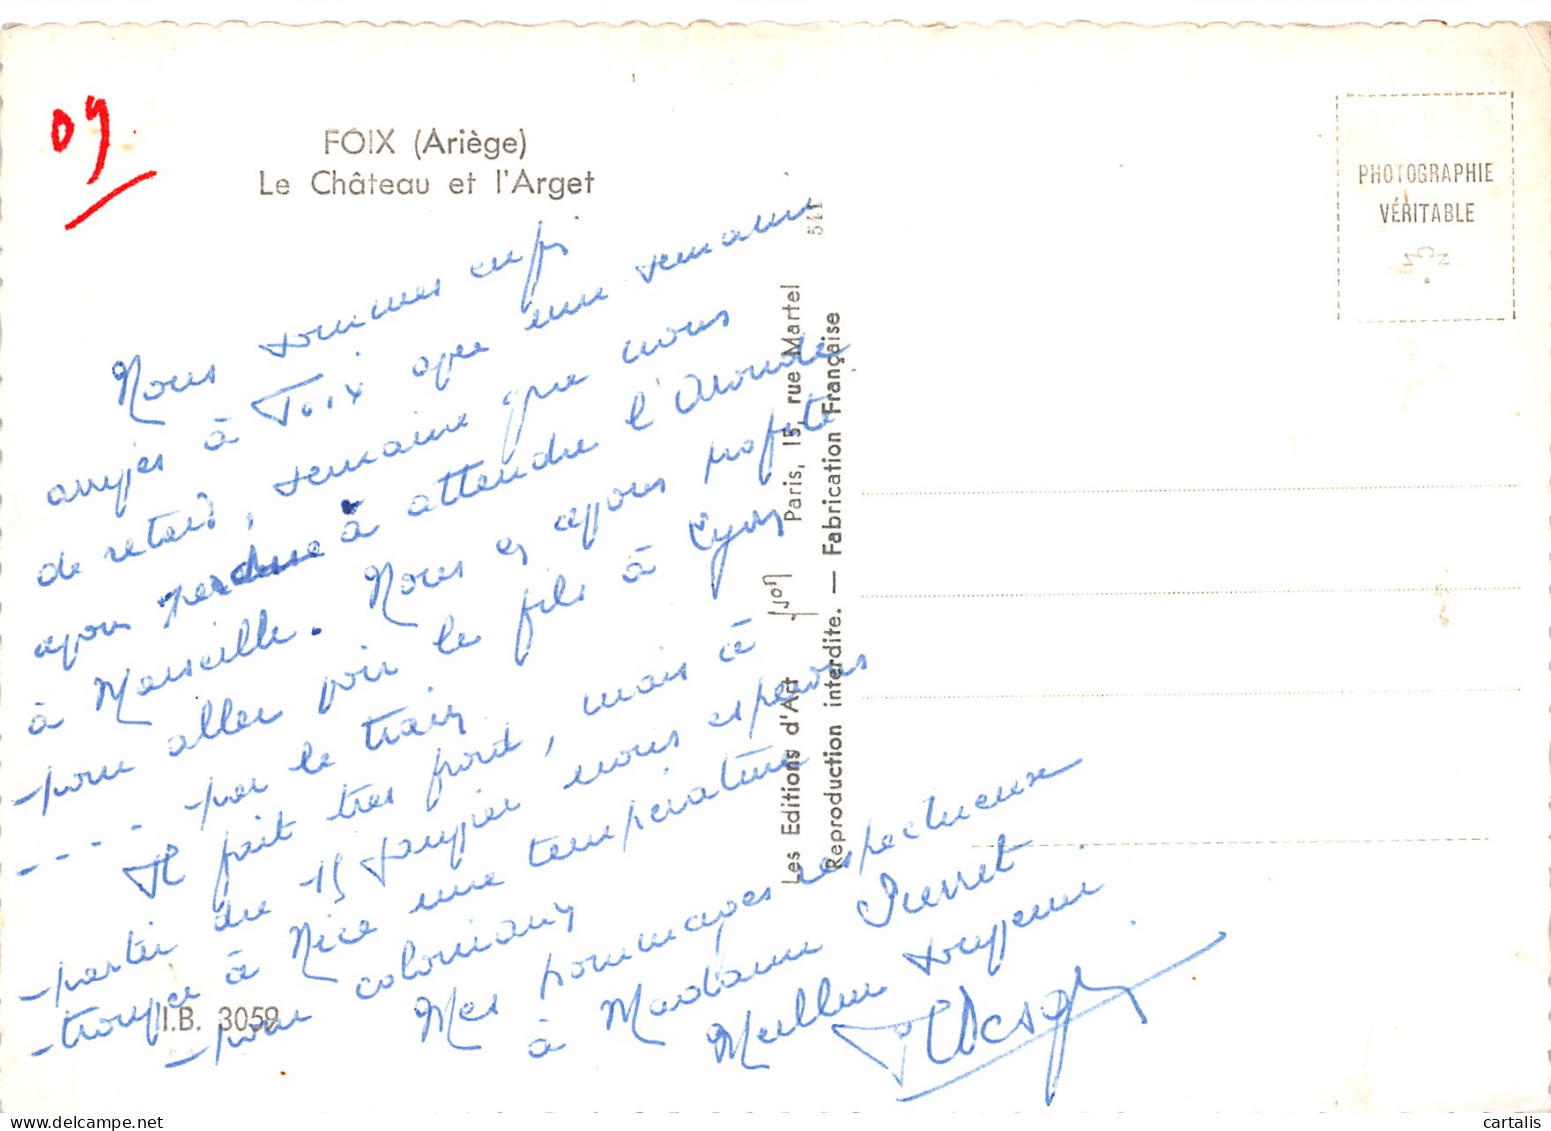 09
FOIX (Ariège)
Le Château et l'Arget
PHOTOGRAPHIE
VÉRITABLE
541
Les Editions d'Art Yvon Paris, 15, rue Martel
Reproduction interdite. — Fabrication Française
Nous sommes enfin
arrivés à Foix avec une semaine
de retard, semaine que nous
avons perdue à attendre l'
à Marseille. Nous en avons profité
pour aller voir le fils à Lyon
- - - - par le train
Il fait très froid, mais à
partir du 15 janvier nous espérons
trouver à Nice une température
pour
Mes hommages respectueux
à Madame Pierret
Meilleur souvenir
I.B. 3059
cartalis